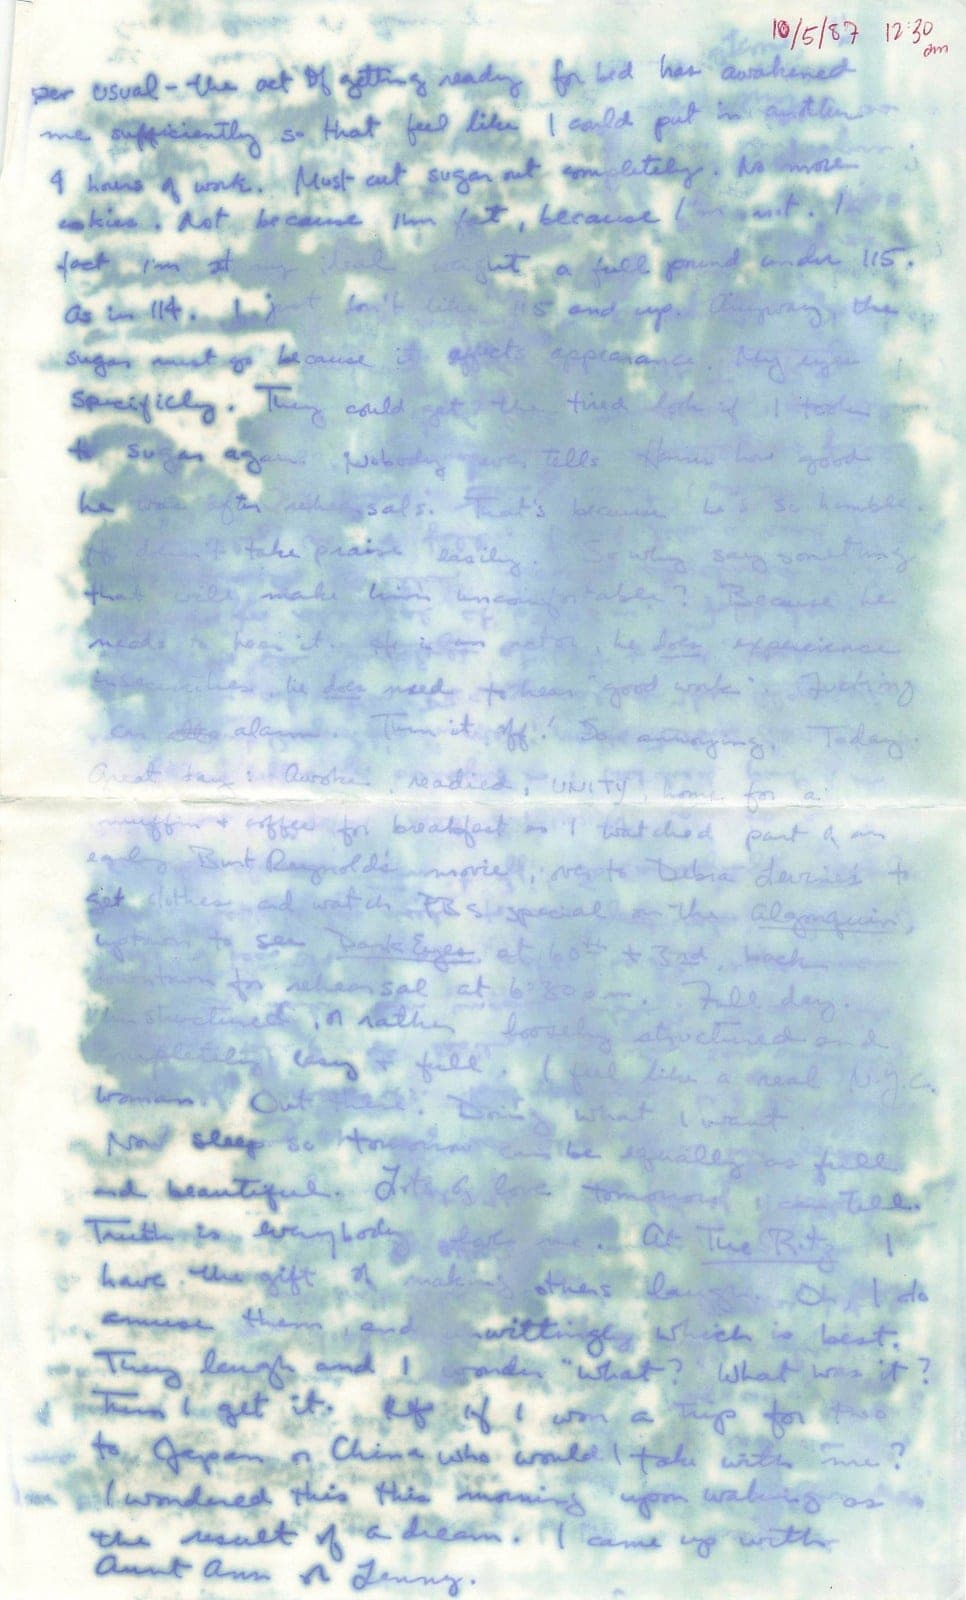 10/5/87 12:30 am
per usual - the act of getting ready for bed has awakened
me sufficiently so that feel like I could put in another
4 hours of work. Must cut sugar out completely. No more
cookies. Not because I'm fat, because I'm not. In
fact I'm at my ideal weight a full pound under 115.
As in 114. I just don't like 115 and up. Anyway, the
sugar must go because it affects appearance. My eyes
specificly. They could get the tired look if I took
to sugar again. Nobody ever tells how good
he was after rehearsals. That's because he's so humble.
He doesn't take praise easily. So why say something
that will make him uncomfortable? Because he
needs to hear it. He is an actor, he does experience
insecurities, he does need to hear "good work". Fucking
car alarm. Turn it off! So annoying. Today.
Great day: Awoke, readied, UNITY, home for a
muffin + coffee for breakfast as I watched part of an
early Burt Reynolds movie, over to Debra Levine's to
get clothes and watch PBS special on the Algonquin,
uptown to see Dark Eyes at 60th + 3rd, back
downtown for rehearsal at 6:30 pm. Full day.
Unstructured, or rather loosely structured and
completely easy + full. I feel like a real N.Y.C.
woman. "Out there". Doing what I want.
Now sleep so tomorrow can be equally as full
and beautiful. Lots of love tomorrow I can tell.
Truth is everybody loves me. At The Ritz I
have the gift of making others laugh. Oh, I do
amuse them, and unwittingly which is best.
They laugh and I wonder "What? What was it?
Then I get it. If I won a trip for two
to Japan or China who would I take with me?
I wondered this this morning upon waking as
the result of a dream. I came up with
Aunt Ann or Lenny.